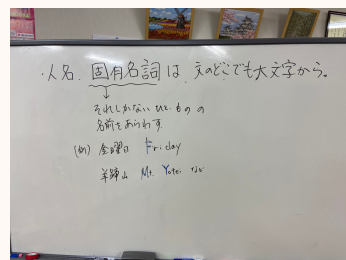 ・人名、固有名詞は、文のどこでも大文字から。
それしかないひと、ものの
名前をあらわす
(例) 金曜日 Friday
羊蹄山 Mt. Yotei